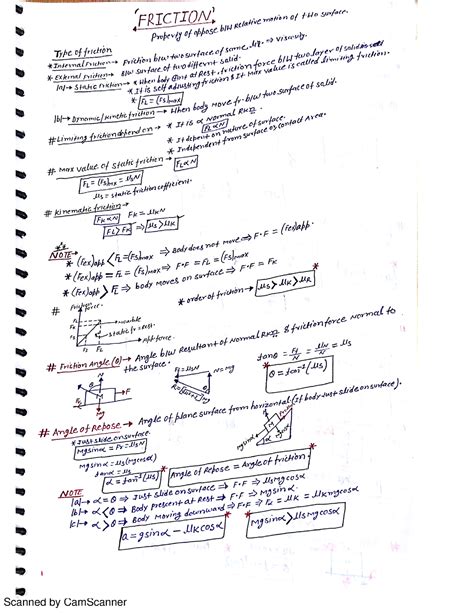 FRICTION
Property of oppose b/w Relative motion of two surface.
Type of friction
* Internal friction → Friction b/w two surface of same → Viscosity.
* External friction → B/W surface of two different solid.
|a| → Static friction → * When body @ at Rest, friction force b/w two layer of solid
* It is self adjusting friction & It max value is called limiting friction.
* FL = (Fs)max
|b| → Dynamic/kinetic friction → When body move b/w two surface of solid.
# Limiting friction depend on → * It is ∝ Normal RXn
FL ∝ N
* It depend on nature of surface.
* Independent from surface or contact area.
# Max value of static friction → FL ∝ N
FL = (Fs)max = μsN
μs = static friction coefficient.
# Kinematic friction →
FK ∝ N FK = μKN
FL > FK ⇒ μs > μK
NOTE →
* (Fex)app < FL = (Fs)max ⇒ Body does not move ⇒ F·F = (Fex)app.
* (Fex)app = FL = (Fs)max ⇒ F·F = FL = (Fs)max
* (Fex)app > FL ⇒ body moves on surface ⇒ F·F = FK
* order of friction → μs > μK > μR
#
Friction force
static = rest
App. force
# Friction Angle (θ) → Angle b/w Resultant of Normal RXn & friction force Normal to
the surface.
tanθ = FL/N = μN/N = μs
θ = tan⁻¹(μs)
FL = μsN
N = Mg
N
θ
M
F
Mg
# Angle of Repose → Angle of plane surface from horizontal (if body just slide on surface).
* Just slide on surface
Mgsinα = Fr = μsN
mgsinα = μs(mgcosα)
tanα = μs
α = tan⁻¹(μs)
* Angle of Repose = Angle of friction *
NOTE
|a| → α = θ ⇒ Just slide on surface ⇒ F·F ⇒ μsmgcosα
|b| → α < θ ⇒ Body Present at Rest ⇒ F·F ⇒ Mgsinα.
|c| → α > θ ⇒ Body Moving downward ⇒ F·F ⇒ FK = μK = μKmgcosα
a = gsinα − μKcosα
mgsinα > μsmgcosα
Scanned by CamScanner